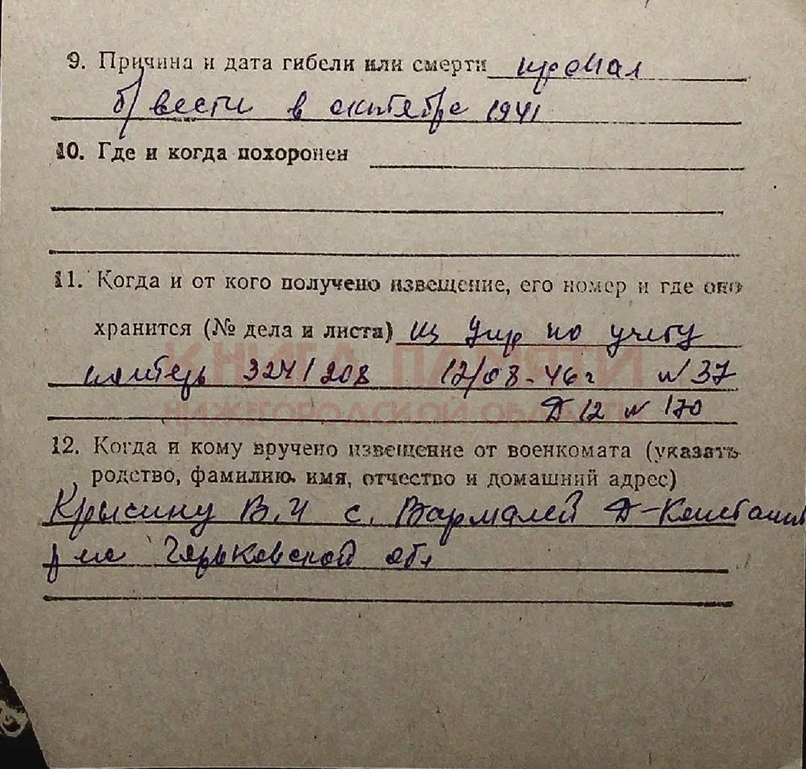 9. Причина и дата гибели или смерти пропал
б/ вести в октябре 1941
10. Где и когда похоронен
11. Когда и от кого получено извещение, его номер и где оно
хранится (№ дела и листа) из Упр по учету
потерь 324/208 12/08-46 г N 37
Д 12 N 170
КНИГА ПАМЯТИ
НИЖЕГОРОДСКОЙ ОБЛАСТИ
12. Когда и кому вручено извещение от военкомата (указать
родство, фамилию, имя, отчество и домашний адрес)
Крысину В.И с. Вармалей Д-Константин
р на Горьковской обл